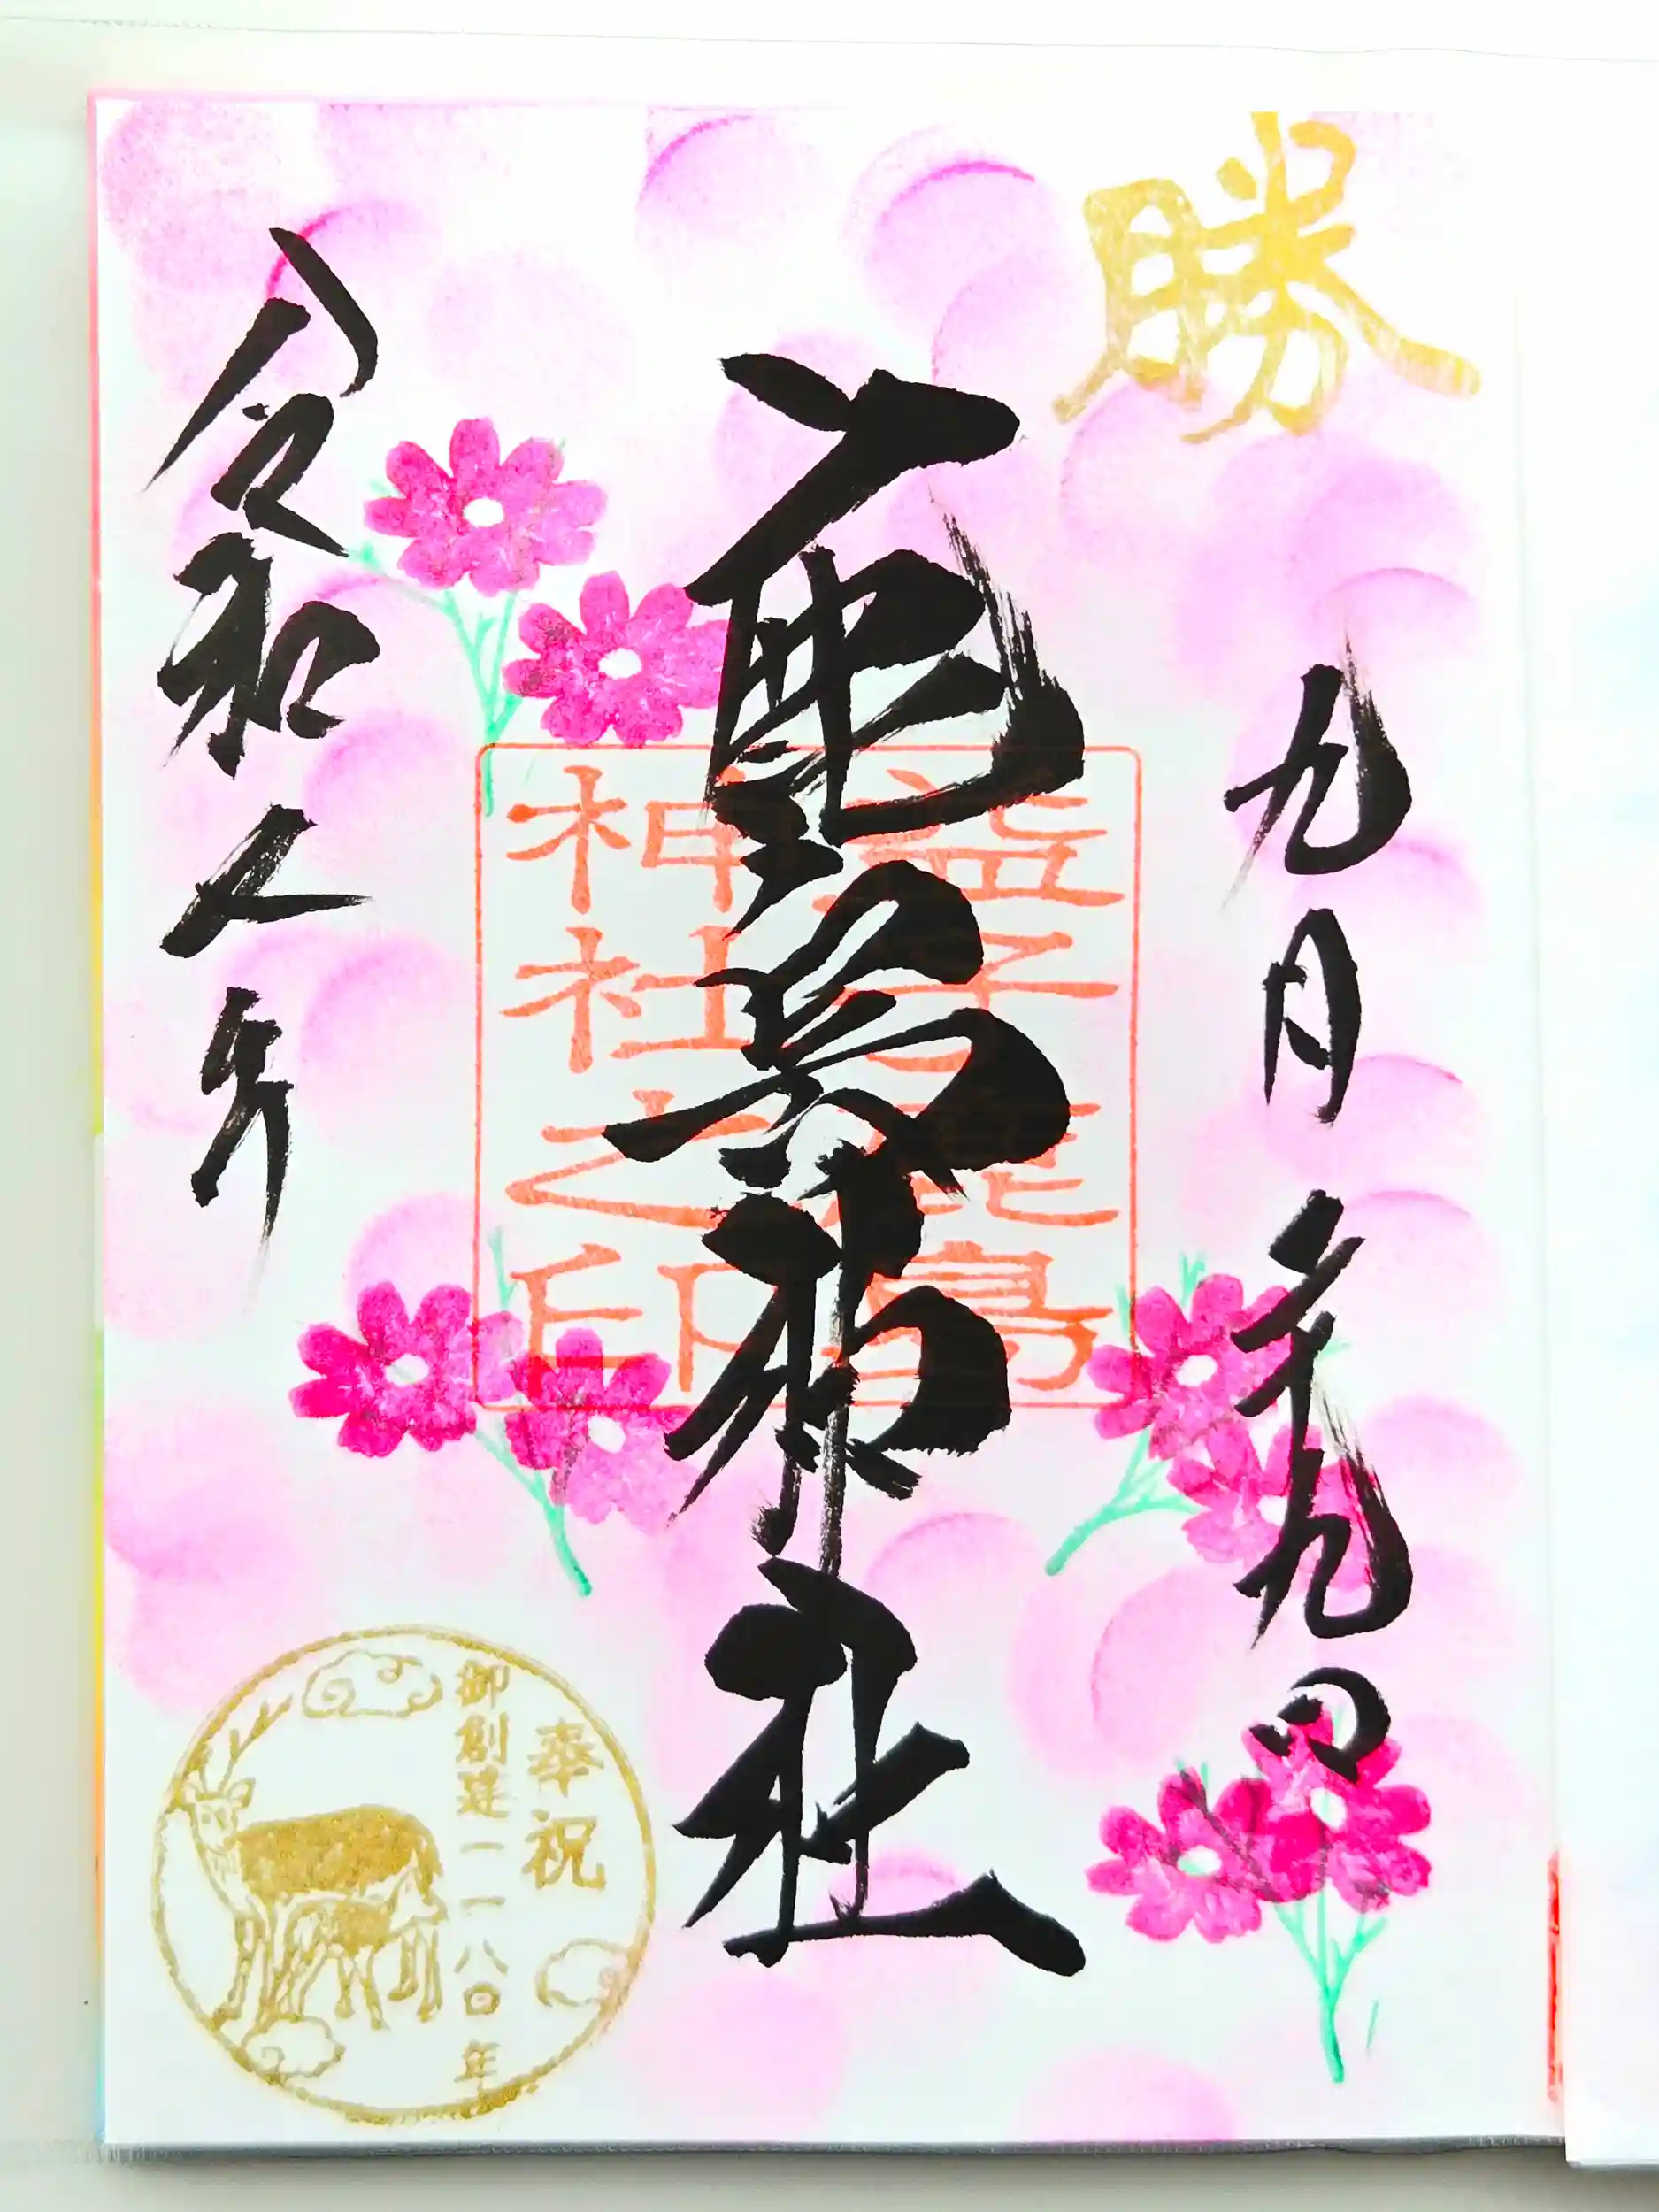 勝
九月二十九日
鹿島神社
令和年
益子鹿島
神社之印
奉祝
御創建一一八〇年